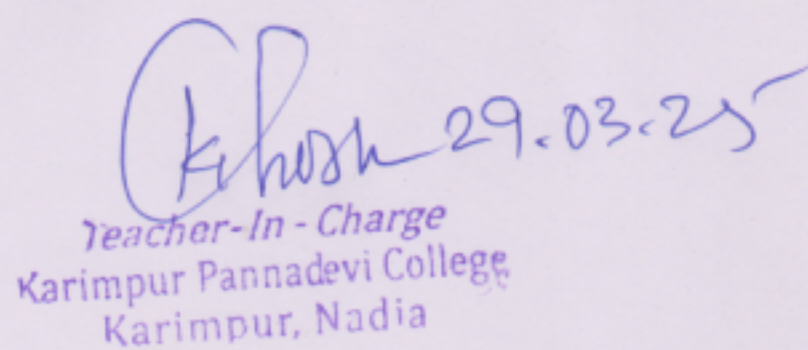 Ghosh 29.03.25
Teacher-In-Charge
Karimpur Pannadevi College
Karimpur, Nadia